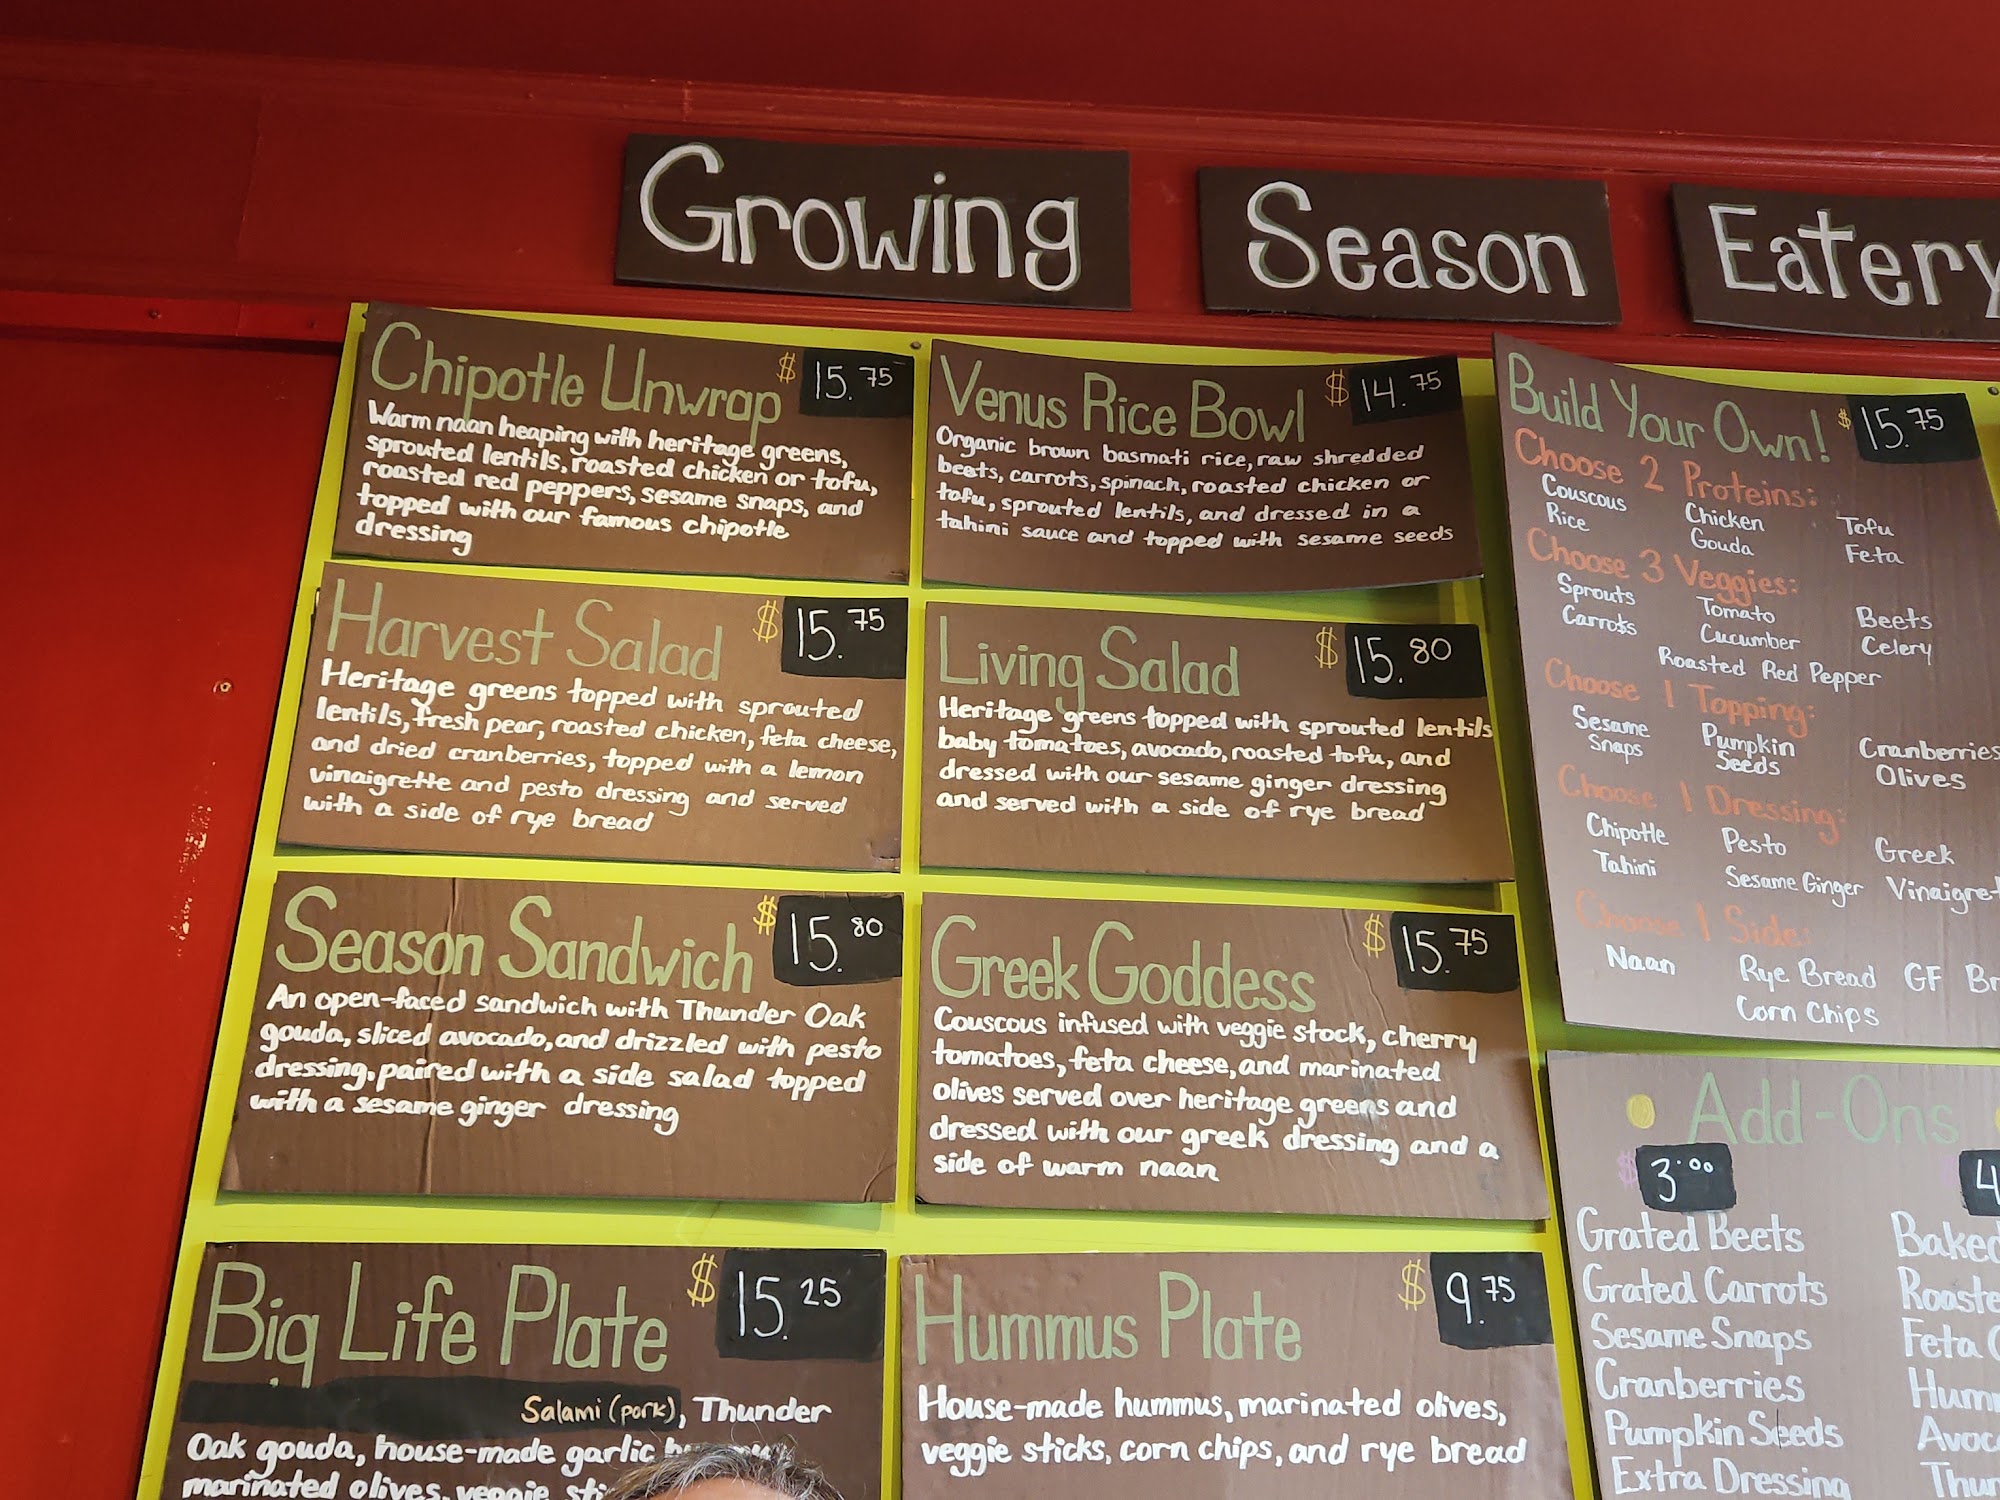 Growing Season Eatery
Chipotle Unwrap $ 15.75
Warm naan heaping with heritage greens,
sprouted lentils, roasted chicken or tofu,
roasted red peppers, sesame snaps, and
topped with our famous chipotle
dressing
Venus Rice Bowl $ 14.75
Organic brown basmati rice, raw shredded
beets, carrots, spinach, roasted chicken or
tofu, sprouted lentils, and dressed in a
tahini sauce and topped with sesame seeds
Harvest Salad $ 15.75
Heritage greens topped with sprouted
lentils, fresh pear, roasted chicken, feta cheese,
and dried cranberries, topped with a lemon
vinaigrette and pesto dressing and served
with a side of rye bread
Living Salad $ 15.80
Heritage greens topped with sprouted lentils
baby tomatoes, avocado, roasted tofu, and
dressed with our sesame ginger dressing
and served with a side of rye bread
Season Sandwich $ 15.80
An open-faced sandwich with Thunder Oak
gouda, sliced avocado, and drizzled with pesto
dressing, paired with a side salad topped
with a sesame ginger dressing
Greek Goddess $ 15.75
Couscous infused with veggie stock, cherry
tomatoes, feta cheese, and marinated
olives served over heritage greens and
dressed with our greek dressing and a
side of warm naan
Big Life Plate $ 15.25
Salami (pork), Thunder
Oak gouda, house-made garlic
marinated olives, veggie
Hummus Plate $ 9.75
House-made hummus, marinated olives,
veggie sticks, corn chips, and rye bread
Build Your Own! $ 15.75
Choose 2 Proteins:
Couscous Chicken Tofu
Rice Gouda Feta
Choose 3 Veggies:
Sprouts Tomato Beets
Carrots Cucumber Celery
Roasted Red Pepper
Choose 1 Topping:
Sesame Snaps Pumpkin Seeds Cranberries
Olives
Choose 1 Dressing:
Chipotle Pesto Greek
Tahini Sesame Ginger
Choose 1 Side:
Naan Rye Bread GF
Corn Chips
Add-Ons
$ 3.00
Grated Beets
Grated Carrots
Sesame Snaps
Cranberries
Pumpkin Seeds
Extra Dressing
4
Baked
Feta